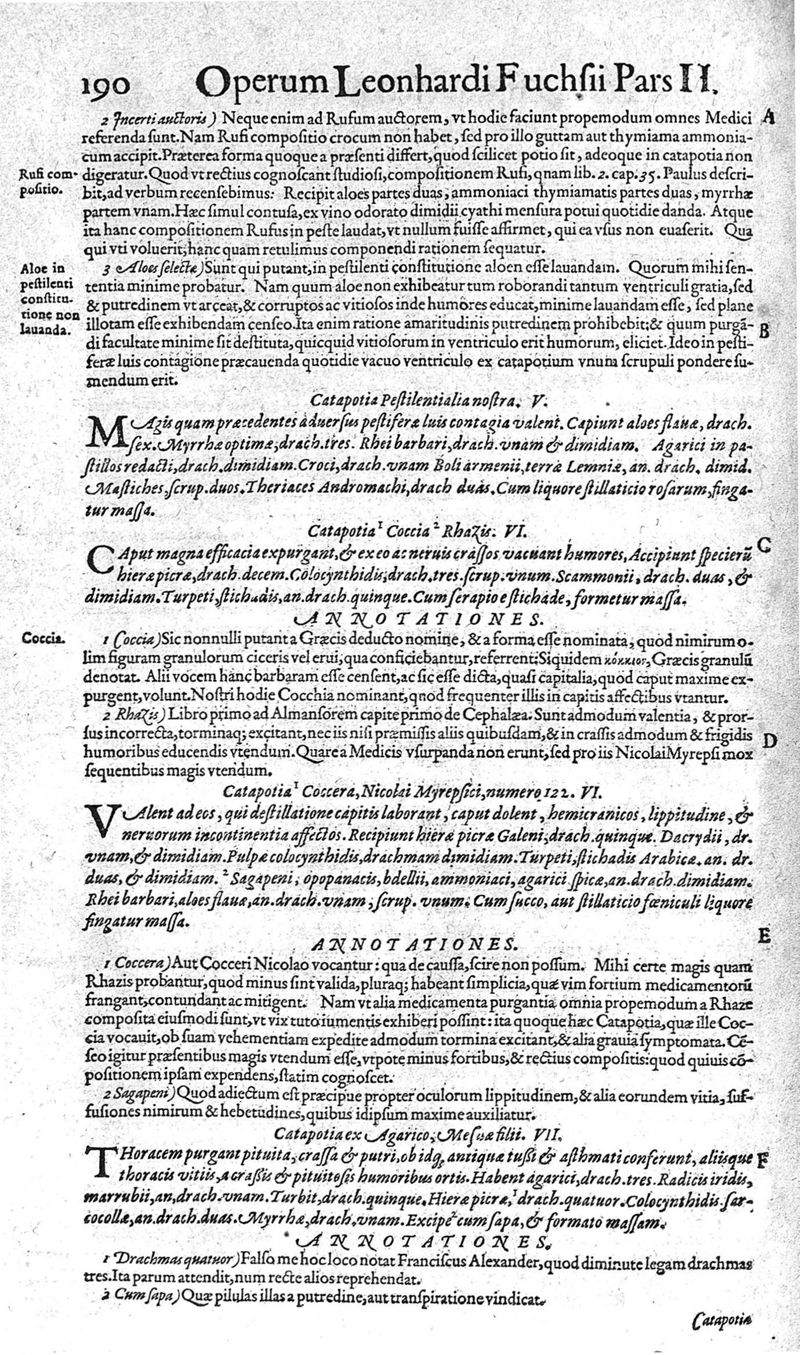 190 Operum Leonhardi Fuchsii Pars II.
2 Incerti auctoris) Neque enim ad Rufum auctorem, vt hodie faciunt propemodum omnes Medici A
referenda sunt. Nam Rufi compositio crocum non habet, sed pro illo guttam aut thymiama ammonia-
cum accipit. Præterea forma quoque a præsenti differt, quod scilicet potio sit, adeoque in catapotia non
Rufi com-
positio.
digeratur. Quod vt rectius cognoscant studiosi, compositionem Rufi, qnam lib. 2. cap. 35. Paulus descri-
bit, ad verbum recensebimus: Recipit aloes partes duas, ammoniaci thymiamatis partes duas, myrrhæ
partem vnam. Hæc simul contusa, ex vino odorato dimidii cyathi mensura potui quotidie danda. Atque
ita hanc compositionem Rufus in peste laudat, vt nullum fuisse affirmet, qui ea vsus non euaserit. Qua
qui vti voluerit, hanc quam retulimus componendi rationem sequatur.
Aloe in
pestilenti
constitu-
tione non
lauanda.
3 Aloes selectæ) Sunt qui putant, in pestilenti constitutione aloen esse lauandam. Quorum mihi sen-
tentia minime probatur. Nam quum aloe non exhibeatur tum roborandi tantum ventriculi gratia, sed
& putredinem vt arceat, & corruptos ac vitiosos inde humores educat, minime lauandam esse, sed plane
illotam esse exhibendam censeo. Ita enim ratione amaritudinis putredinem prohibebit; & quum purgã- B
di facultate minime sit destituta, quicquid vitiosorum in ventriculo erit humorum, eliciet. Ideo in pesti-
feræ luis contagione præcauenda quotidie vacuo ventriculo ex catapotium vnum scrupuli pondere su-
mendum erit.
Catapotia Pestilentialia nostra. V.
MAgis quam præcedentes aduersus pestiferæ luis contagia valent. Capiunt aloes flauæ, drach.
sex. Myrrhæ optimæ, drach. tres. Rhei barbari, drach. vnam & dimidiam. Agarici in pa-
stillos redacti, drach. dimidiam. Croci, drach. vnam Boli armenii, terræ Lemniæ, an. drach. dimid.
Mastiches, scrup. duos. Theriaces Andromachi, drach duas. Cum liquore stillaticio rosarum, finga-
tur massa.
Catapotia 1 Coccia 2 Rhazis. VI.
CAput magna efficacia expurgant, & ex eo ac neruis crassos vacuant humores, Accipiunt specierũ C
hieræ picræ, drach. decem. Colocynthidis, drach. tres. scrup. vnum. Scammonii, drach. duas, &
dimidiam. Turpeti, stichadis, an. drach. quinque. Cum serapio e stichade, formetur massa.
ANNOTATIONES.
Coccia.
1 Coccia) Sic nonnulli putant a Græcis deducto nomine, & a forma esse nominata, quod nimirum o-
lim figuram granulorum ciceris vel erui, qua conficiebantur, referrent: Siquidem κόκκιον, Græcis granulũ
denotat. Alii vocem hanc barbaram esse censent, ac sic esse dicta, quasi capitalia, quod caput maxime ex-
purgent, volunt. Nostri hodie Cocchia nominant, qnod frequenter illis in capitis affectibus vtantur.
2 Rhazis) Libro primo ad Almansorem capite primo de Cephalæa. Sunt admodum valentia, & pror-
sus incorrecta, torminaq; excitant, nec iis nisi præmissis aliis quibusdam, & in crassis admodum & frigidis D
humoribus educendis vtendum. Quare a Medicis vsurpanda non erunt, sed pro iis Nicolai Myrepsi mox
sequentibus magis vtendum.
Catapotia 1 Coccera, Nicolai Myrepsici, numero 122. VI.
VAlent ad eos, qui destillatione capitis laborant, caput dolent, hemicranicos, lippitudine, &
neruorum incontinentia affectos. Recipiunt hieræ picræ Galeni, drach. quinque. Dacrydii, dr.
vnam, & dimidiam. Pulpæ colocynthidis, drachmam dimidiam. Turpeti, stichadis Arabicæ. an. dr.
duas, & dimidiam. 2 Sagapeni, opopanacis, bdellii, ammoniaci, agarici spicæ, an. drach. dimidiam.
Rhei barbari, aloes flauæ, an. drach. vnam, scrup. vnum. Cum succo, aut stillaticio fœniculi liquore
fingatur massa.
ANNOTATIONES. E
1 Coccera) Aut Cocceri Nicolao vocantur: qua de caussa, scire non possum. Mihi certe magis quam
Rhazis probantur, quod minus sint valida, pluraq; habeant simplicia, quæ vim fortium medicamentorũ
frangant, contundant ac mitigent. Nam vt alia medicamenta purgantia omnia propemodum a Rhaze
composita eiusmodi sunt, vt vix tuto iumentis exhiberi possint: ita quoque hæc Catapotia, quæ ille Coc-
cia vocauit, ob suam vehementiam expedite admodum tormina excitant, & alia grauia symptomata. Cẽ-
seo igitur præsentibus magis vtendum esse, vtpote minus fortibus, & rectius compositis: quod quiuis cõ-
positionem ipsam expendens, statim cognoscet.
2 Sagapeni) Quod adiectum est præcipue propter oculorum lippitudinem, & alia eorundem vitia, suf-
fusiones nimirum & hebetudines, quibus idipsum maxime auxiliatur.
Catapotia ex Agarico, Mesuæ filii. VII.
THoracem purgant pituita, crassa & putri, ob idq, antiquæ tussi & asthmati conferunt, aliisque F
thoracis vitiis, a crassis & pituitosis humoribus ortis. Habent agarici, drach. tres. Radicis iridis,
marrubii, an, drach. vnam. Turbit, drach. quinque. Hieræ picræ, 1 drach. quatuor. Colocynthidis. sar-
cocollæ, an. drach. duas. Myrrhæ, drach. vnam. Excipe 2 cum sapa, & formato massam.
ANNOTATIONES.
1 Drachmas quatuor) Falso me hoc loco notat Franciscus Alexander, quod diminute legam drachmas
tres. Ita parum attendit, num recte alios reprehendat.
2 Cum sapa) Quæ pilulas illas a putredine, aut transpiratione vindicat.
Catapotia